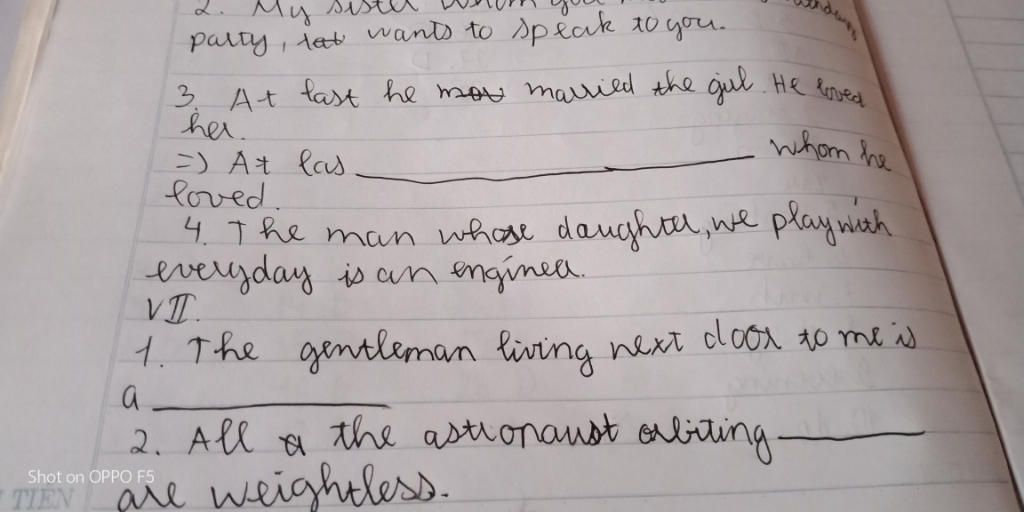 2. My sister whom you
party, wants to speak to you.
3. At last he married the girl. He loved
her.
=) At las ____________ whom he
loved.
4. The man whose daughter, we play with
everyday is an enginea.
VII.
1. The gentleman living next door to me is
a ____________
2. All the astronaust orbiting ________
are weightless.
Shot on OPPO F5
TIEN